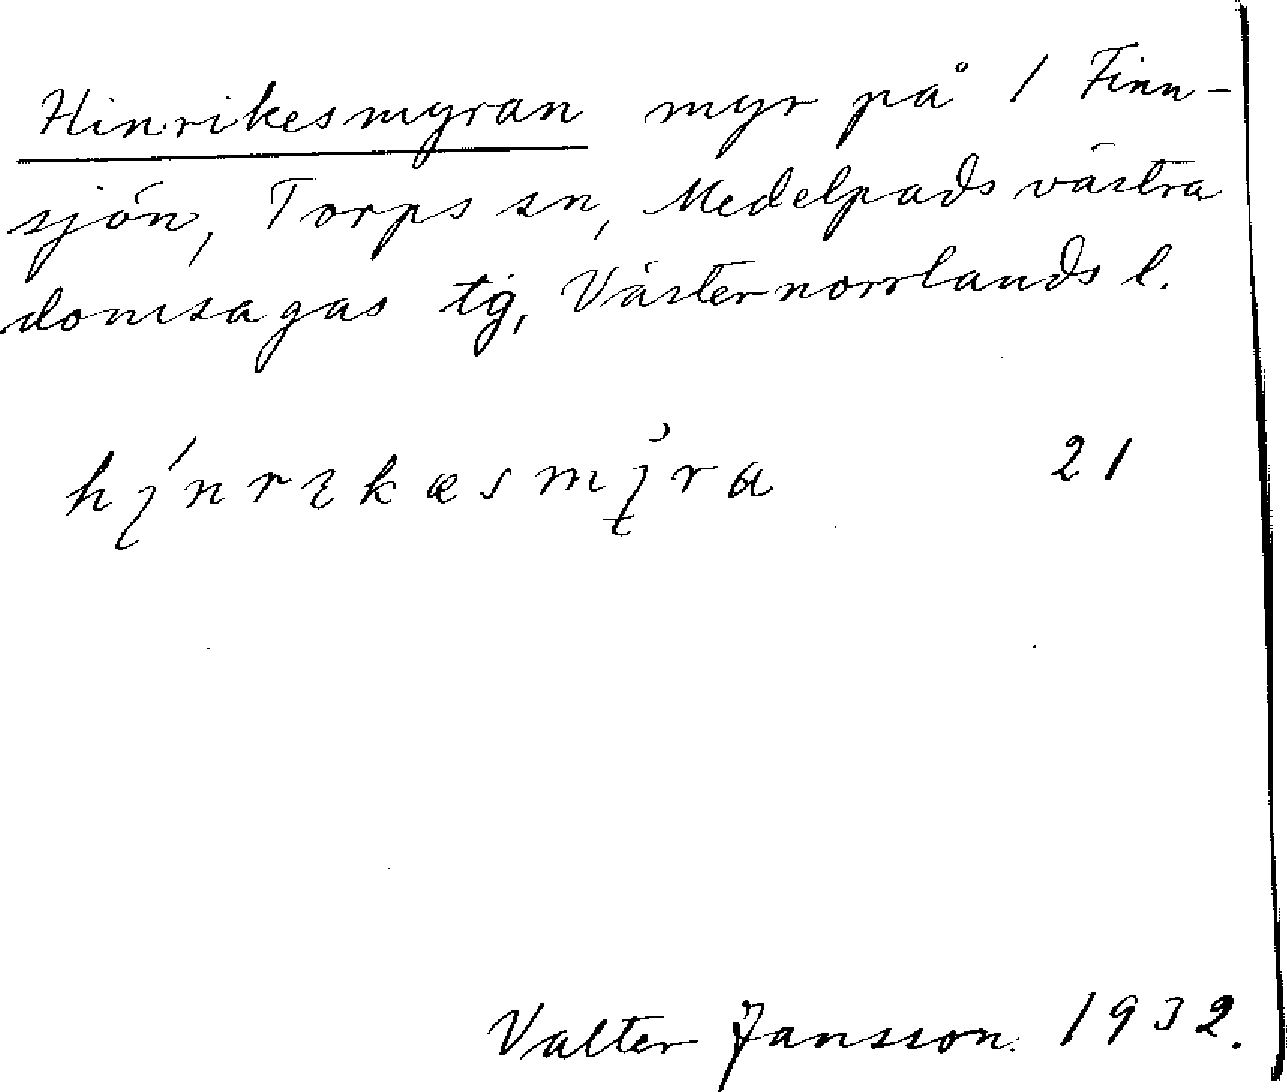 Hinrikesmyran myr på 1 Finn-
sjön, Torps sn, Medelpads västra
domsagas tg, Västernorrlands l.
21
Valter Jansson 1932.